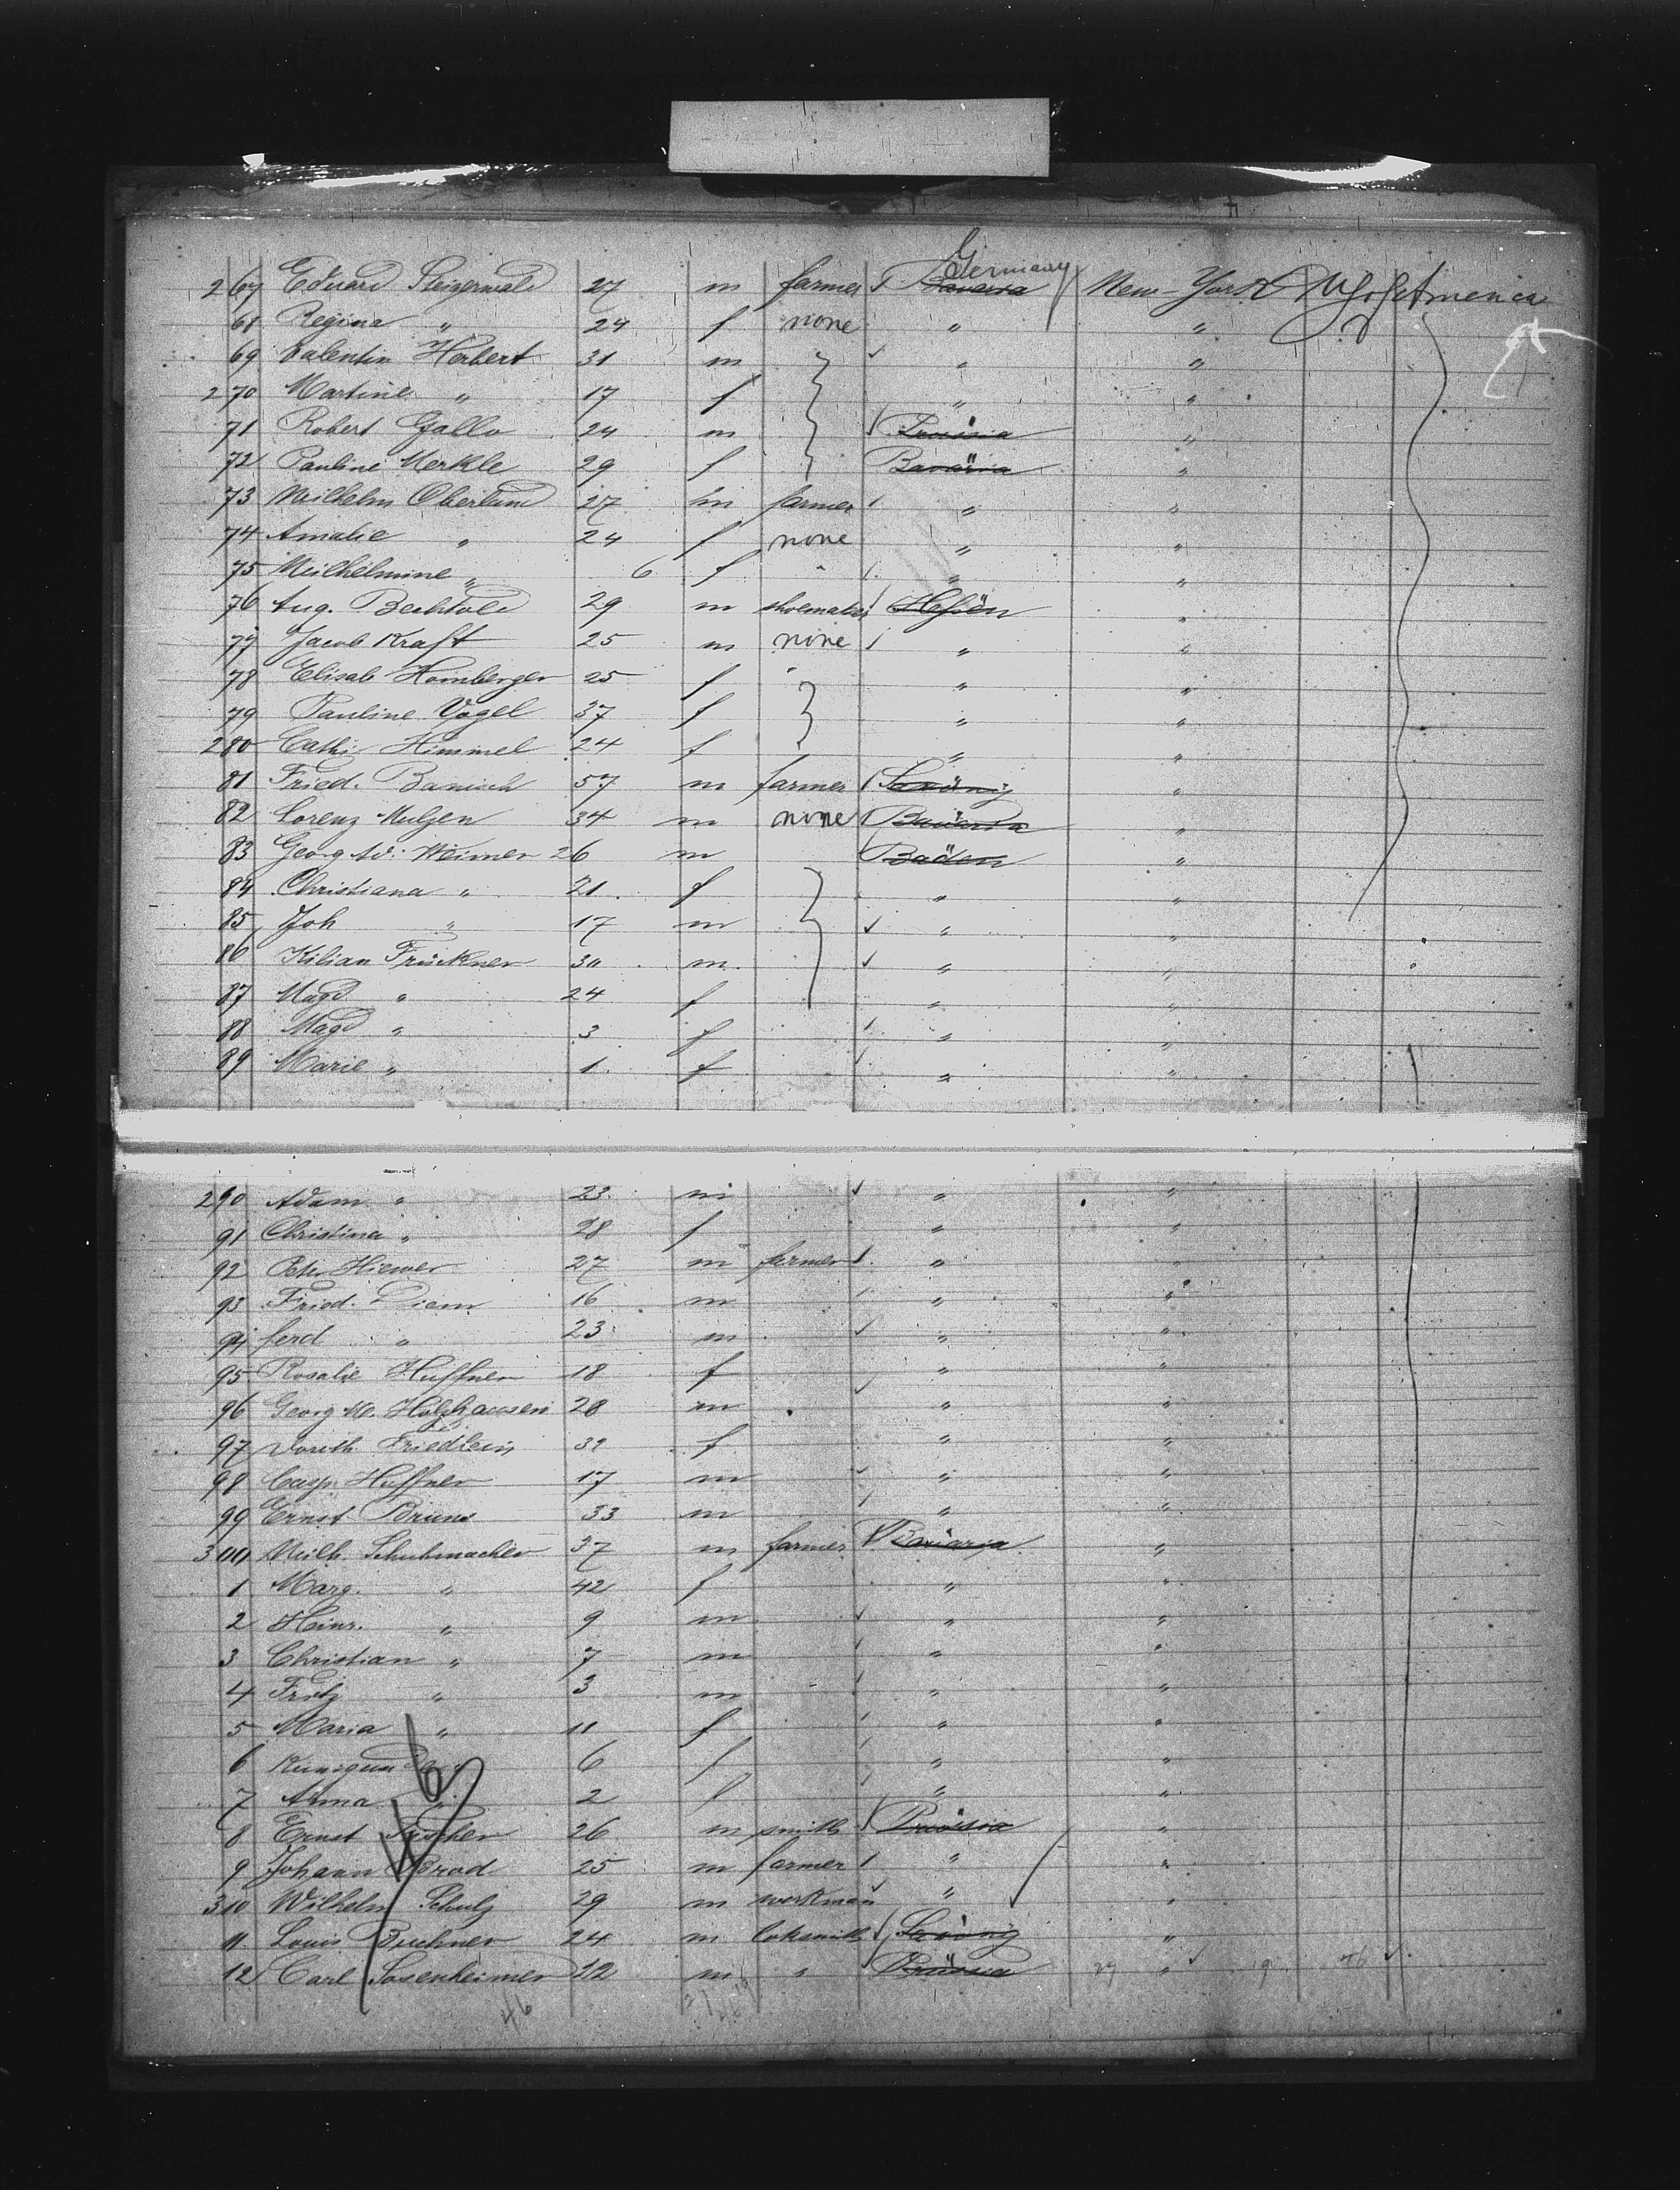 Germany
267 Eduard Steigerwald 27 m farmer Bavaria New-York U.S. of America
68 Regina " 24 f none " "
69 Valentin Herbert 31 m " "
270 Martine " 17 f " "
71 Robert Gallo 24 m Prussia "
72 Pauline Merkle 29 f Bavaria "
73 Wilhelm 27 m farmer " "
74 Amalie " 24 f none " "
75 Wilhelmine " 6 f " "
76 Aug. Bechtold 29 m shoemaker Hessen "
77 Jacob Kraft 25 m none " "
78 Elisab Homberger 25 f " "
79 Pauline Vogel 37 f " "
280 Cath: Himmel 24 f " "
81 Fried. Banisch 57 m farmer "
82 Lorenz 34 m none Bavaria "
83 Georg Ad: Weimer 26 m Baden "
84 Christiana " 21 f " "
85 Joh " 17 m " "
86 Kilian Trückner 30 m " "
87 Magd " 24 f " "
88 Magd " 3 f " "
89 Marie " 1 f " "
290 Adam " 23 m " "
91 Christina " 28 f " "
92 Peter Hiemer 27 m farmer " "
93 Fried. Diem 16 m " "
94 ferd " 23 m " "
95 Rosalie Huffner 18 f " "
96 Georg M. Holzhausen 28 m " "
97 Doroth. Friedlein 32 f " "
98 Casp. Huffner 17 m " "
99 Ernst Bruns 33 m " "
300 Wilh. Schuhmacher 37 m farmer Bavaria "
1 Marg. " 42 f " "
2 Heinr. " 9 m " "
3 Christian " 7 m " "
4 Fritz " 3 m " "
5 Maria " 11 f " "
6 Kunigunda " 6 f " "
7 Anna " 2 f " "
8 Ernst Fischer 26 m smith Prussia "
9 Johann Brod 25 m farmer " "
310 Wilhelm Schulz 29 m workman " "
11. Louis Buchner 24 m loksmith "
12 Carl Sosenheimer 22 m " Prussia "
46
46